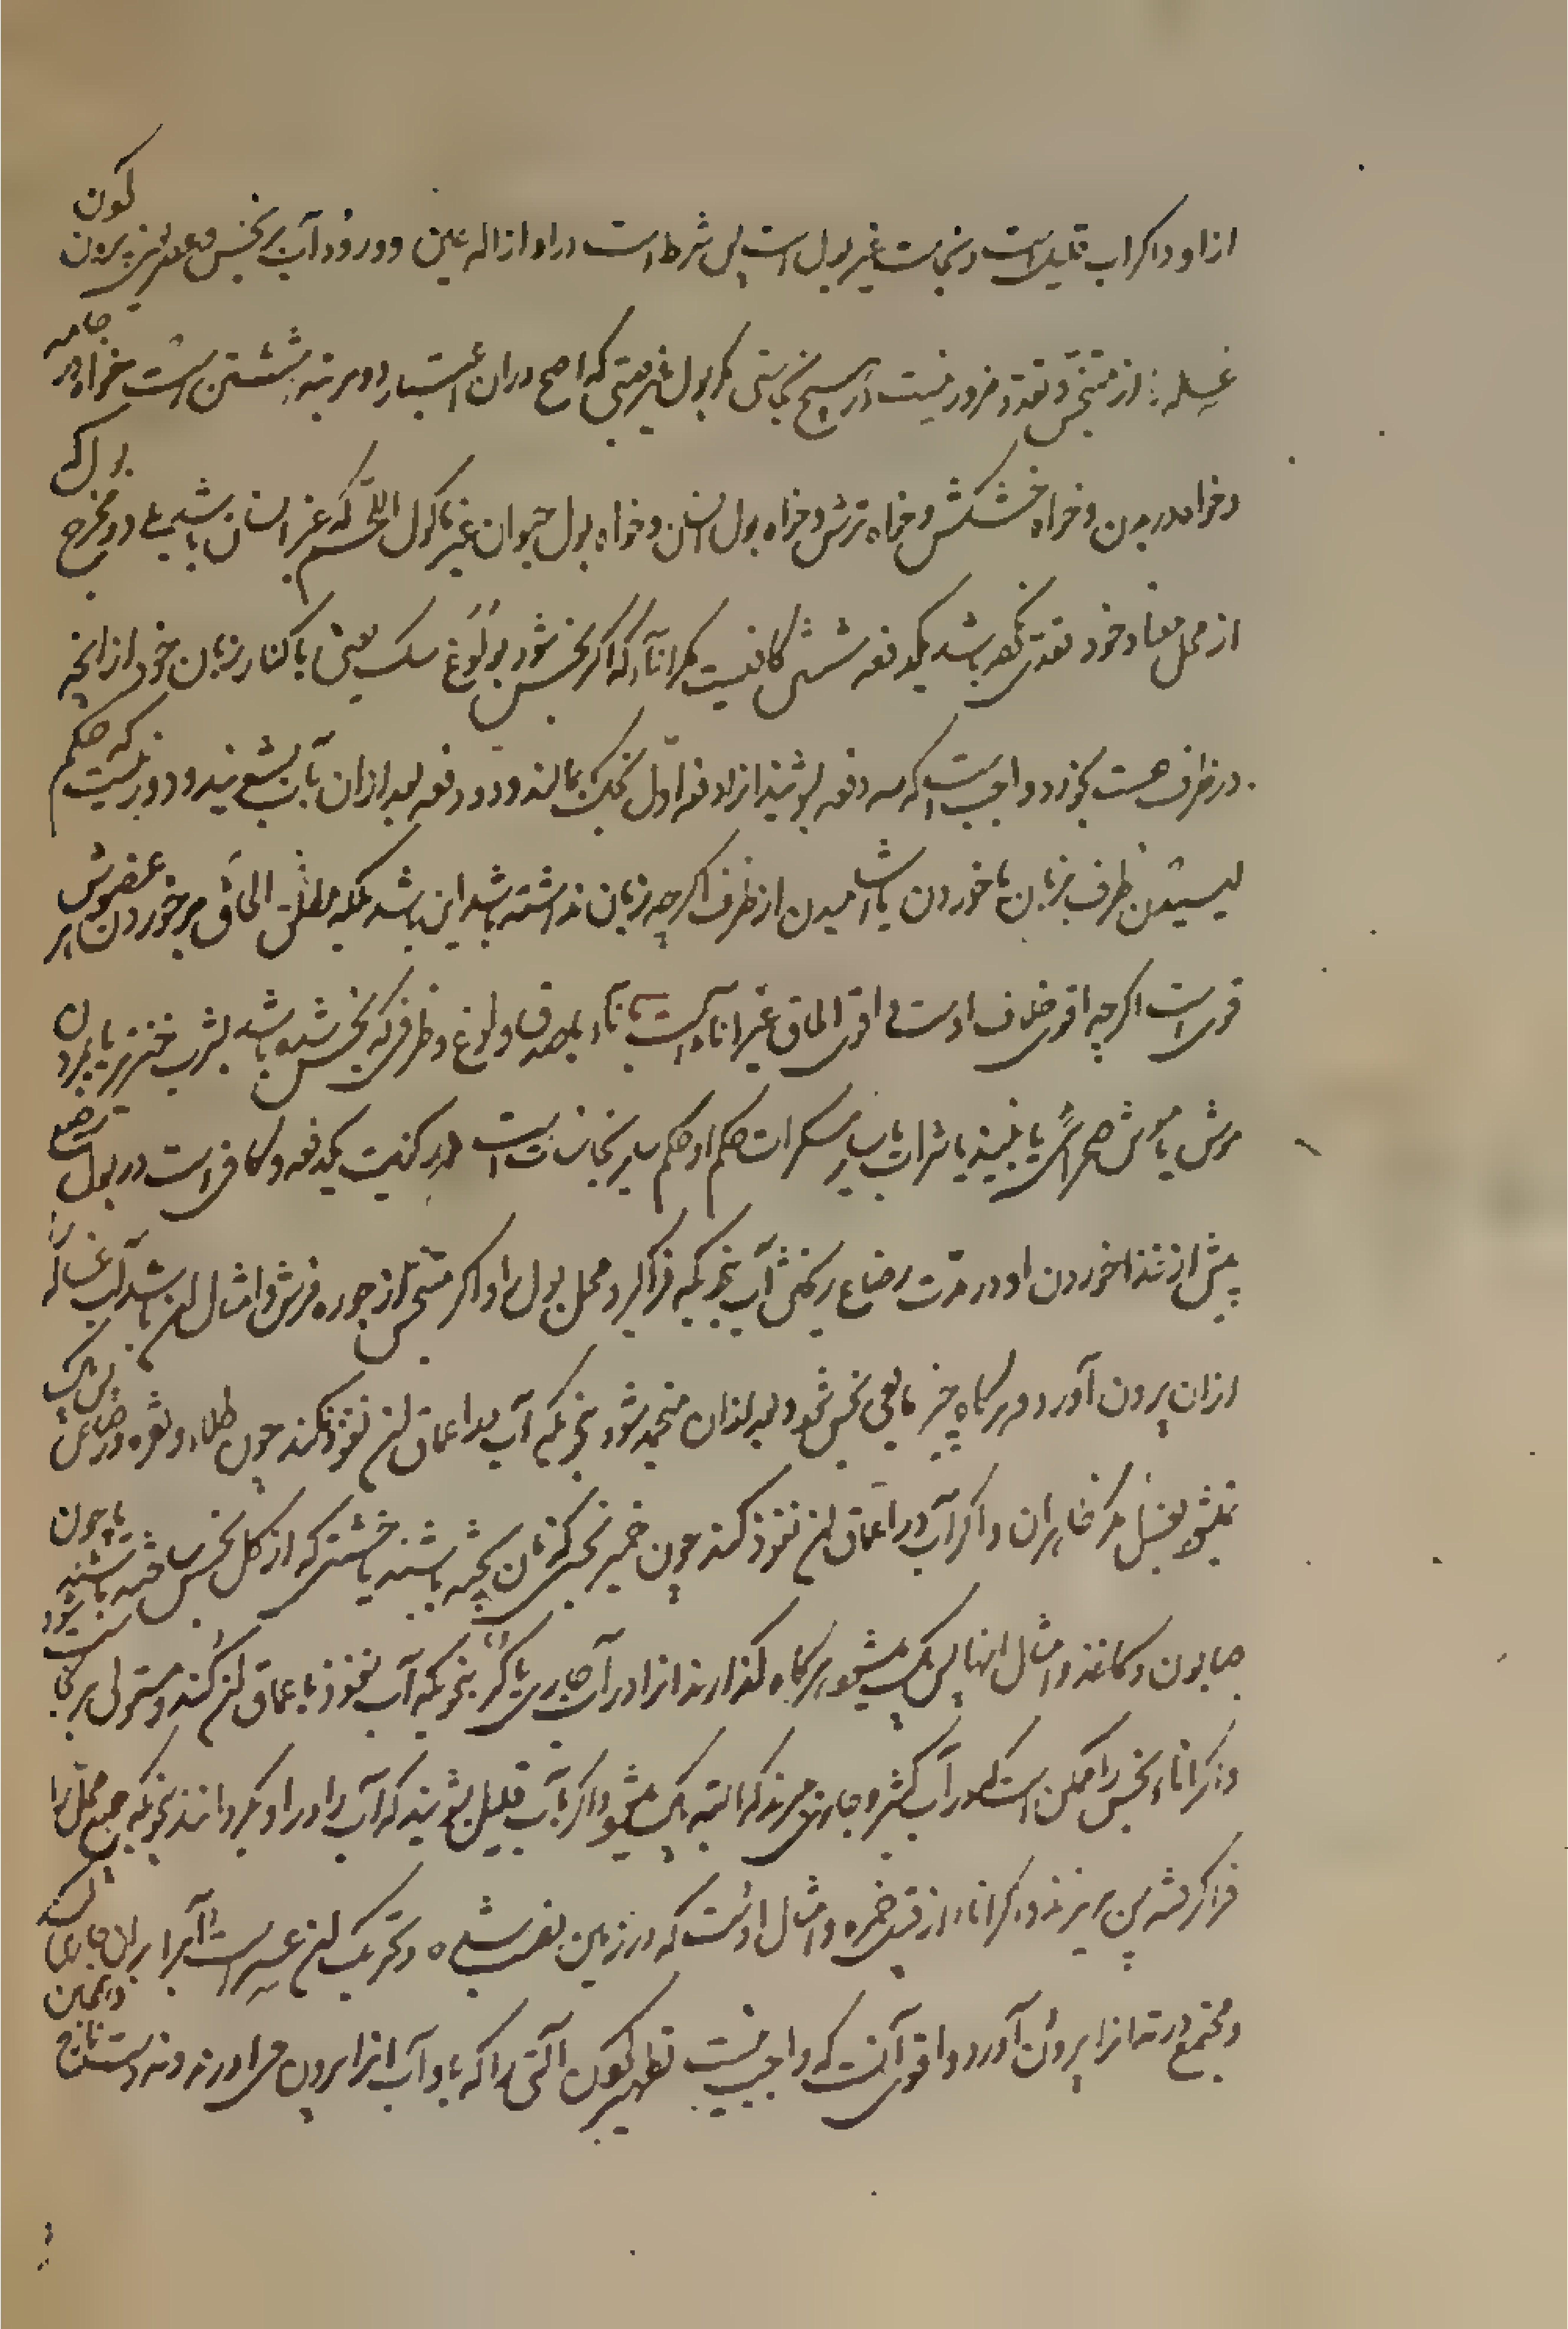 ازاو و اگر اب قلیل است و نجاست غیر بول است پس شرط است دراو ازاله عین و ورود آب بر نجس و بعد ازین بیرون کردن
غساله از متنجس و تعدد ضرور نیست در هیچ نجاستی مگر بول غیر صبی که اصح دران اعتبار دو مرتبه شستن است خواه در جامه
و خواه در بدن و خواه خشکش و خواه ترش و خواه بول انسان و خواه بول حیوان غیر ماکول اللحم که غیر انسان باشد بلی در مخرج بول که
از محل معتاد خود تعدی نکرده باشد یکدفعه شستن کافیست مگر اناء که اگر نجس شود بولوغ سگ یعنی با کنار زبان خود از انچه
در ظرف هست بخورد واجب است که سه دفعه بشویند ازاو دفعه اول بخاک بمالند و دو دفعه بعد ازان بآب بشویند و دور نیست که حکم
لیسیدن ظرف بزبان یا خوردن یا اشامیدن از ظرف اگرچه زبان نداشته باشد این باشد بلکه مطلق الحاق هر خوردن بهر عضوش
قوی است اگرچه اقوی خلاف اوست و اقوی الحاق غیر اناء است باناء بصدق ولوغ و ظرفی که نجس شده باشد بشرب خنزیر یا بمردن
موش یا موش صحرائی یا نبیذ یا شراب یا سایر مسکرات حکم او حکم سایر نجاسات است در کفایت یکدفعه و کافی است در بول رضیع
پیش از غذا خوردن او در مدت رضاع ریختن آب بنحویکه فراگیرد محل بول را و اگر متنجس از چون فرش و امثال ان باشد آب غساله را
ازان بیرون آورد و هرگاه چیز مایعی نجس شود و بعد ازان منجمد شود بنحویکه آب در اعماق ان نفوذ نکند چون طلاء و نقره و رصاص پس پاک
نمیشود بغسل مگر ظاهر ان و اگر آب در اعماق ان نفوذ کند چون خمیر نجس که نان پخته باشند یا خشتی که از گل نجس ساخته باشند یا چون
صابون و کاغذ و امثال اینها پس پاک میشود هرگاه گذارند انرا در آب جاری یا کر بنحویکه آب نفوذ باعماق ان کند و مستولی بر نجاست شود
و اگر اناء نجس را ممکن است که در آب کثیر و جاری برند که البته پاک میشود و اگر بآب قلیل بشویند که آب را در او بگردانند بنحویکه جمیع محل را
فراگرفته پس بریزند و اگر اناء از قبیل خمره و امثال اوست که در زمین نصب شده و تحریک ان عسیر است آب را بران جاری کنند
و مجتمع در ته انرا بیرون آورد و اقوی آنست که واجب نیست تطهیر کردن آلتی را که باو آب انرا بیرون می اورند و نه دست نازح و همچنین